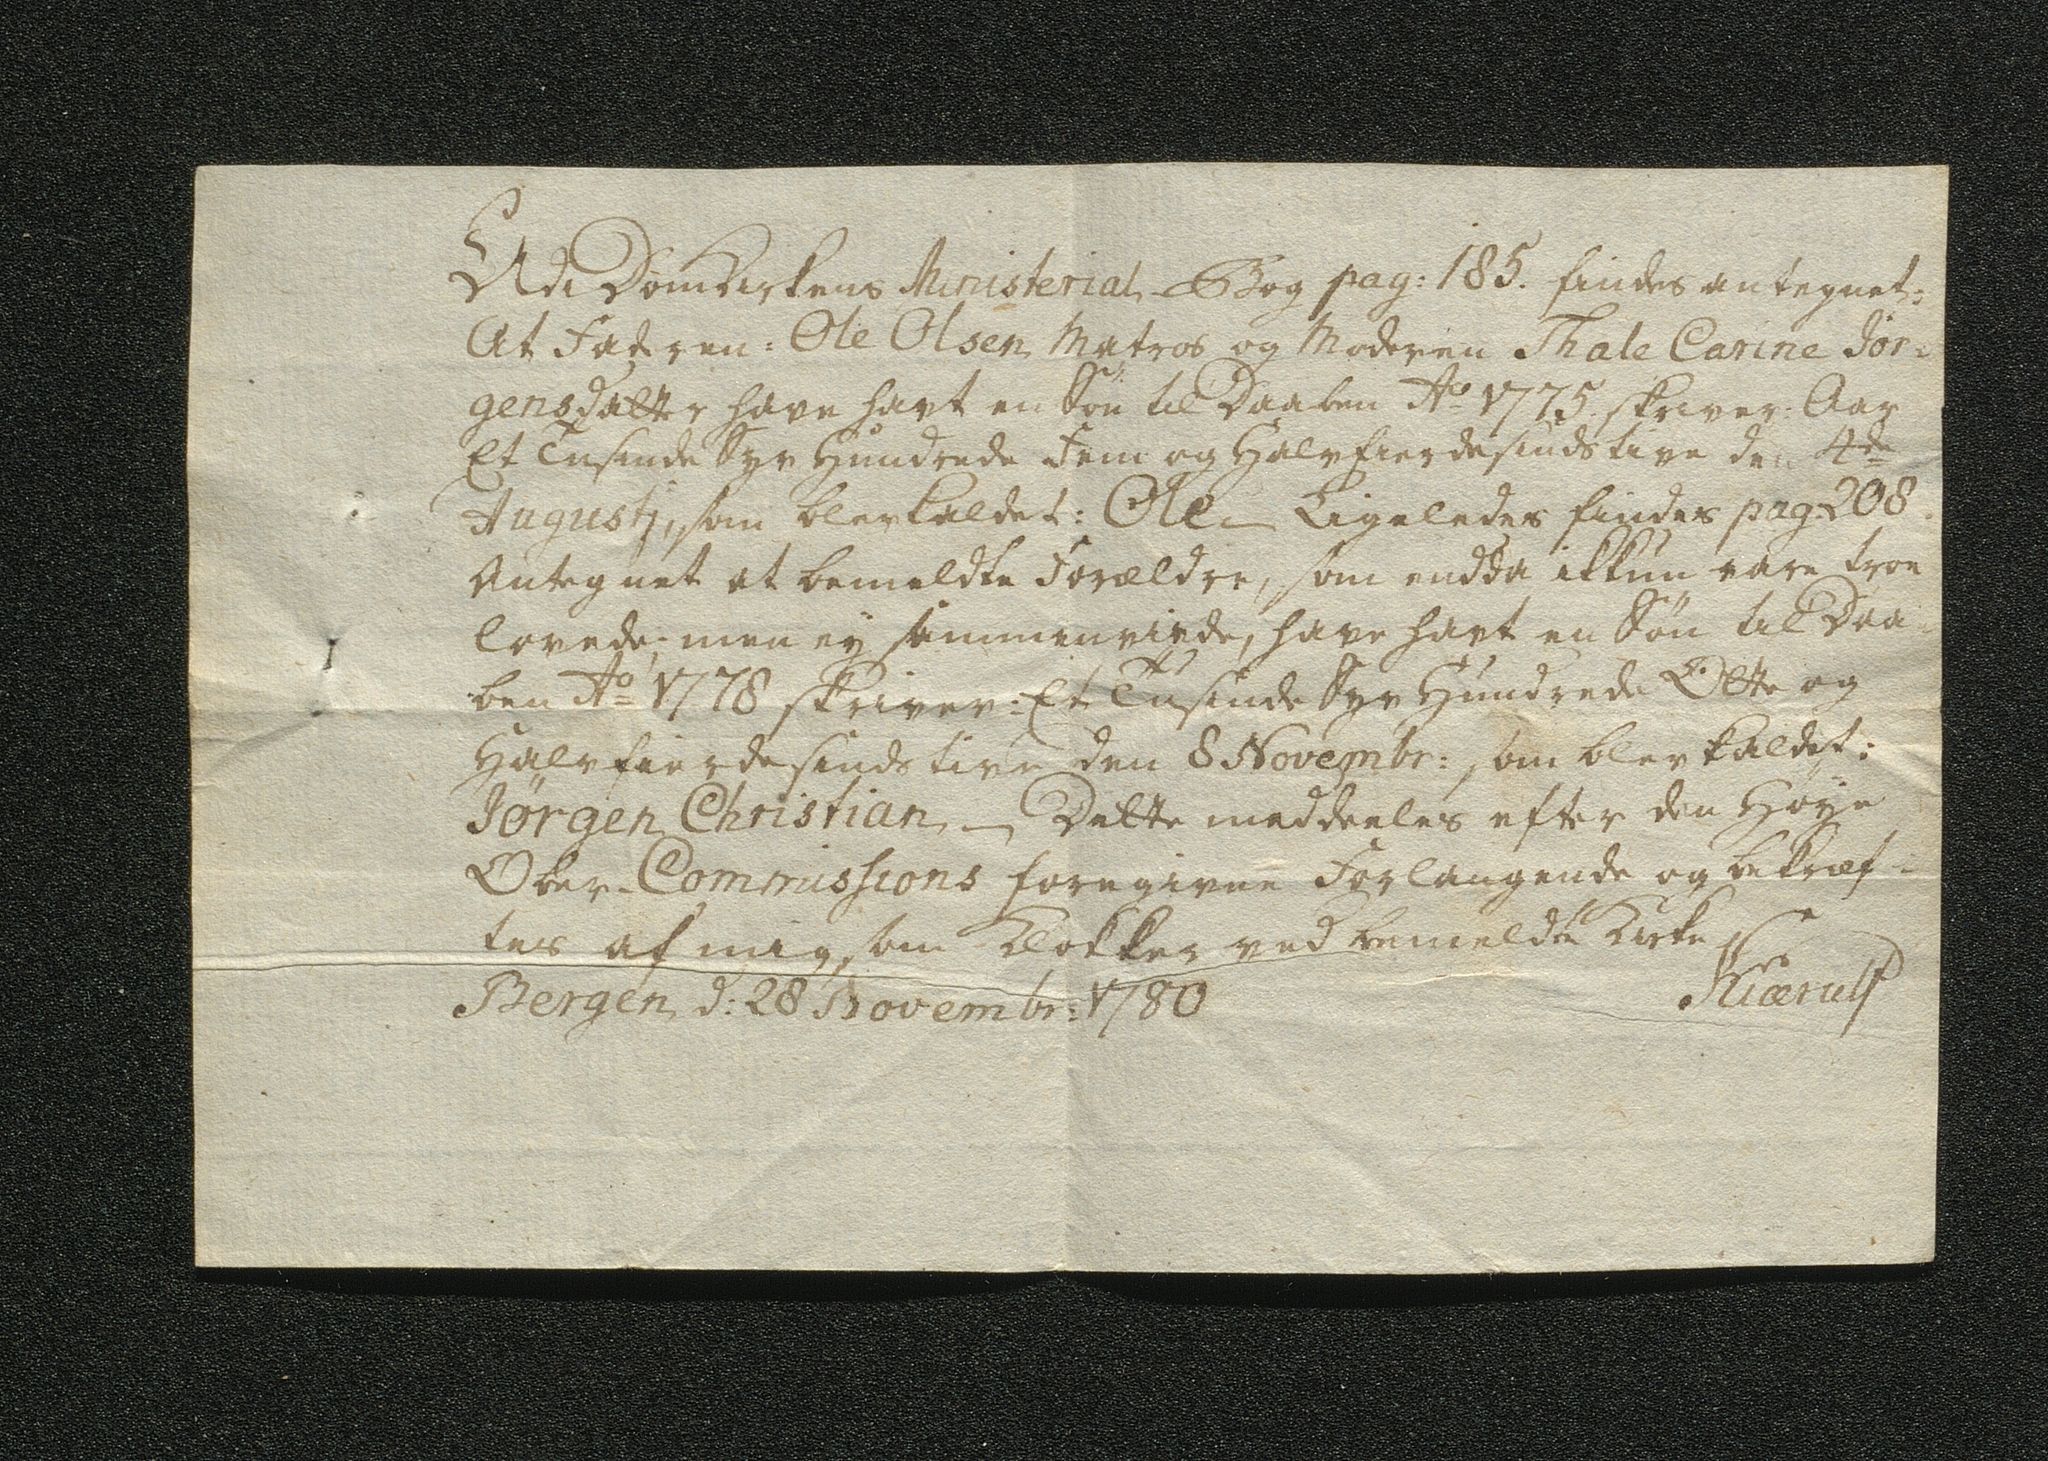 Udi Domkirkens Ministerial Bog pag: 185. findes antegnet:
At Faderen: Ole Olsen Matros og Moderen Thale Carine Jør-
gensdatter have havt en Søn til Daaben Ao 1775. skriver: Aar
Et Tusinde Syv Hundrede Fem og Halvfierdesindstive den 4de
Augustj, som blev kaldet: Ole – Ligeledes findes pag: 208.
Antegnet at bemeldte Forældre, som endda ikkun vare troe
lovede, men ey sammenviede, have havt en Søn til Daa-
ben Ao 1778 skriver: Et Tusinde Syv Hundrede Otte og
Halvfierdesindstive den 8 Novembr: som blev kaldet:
Jørgen Christian – Dette meddeeles efter den Høye
Ober-Commissions foregivne Forlangende og bekræf-
tes af mig som Klokker ved bemeldte Kirke
Bergen d: 28 Novembr: 1780 Kiærulf